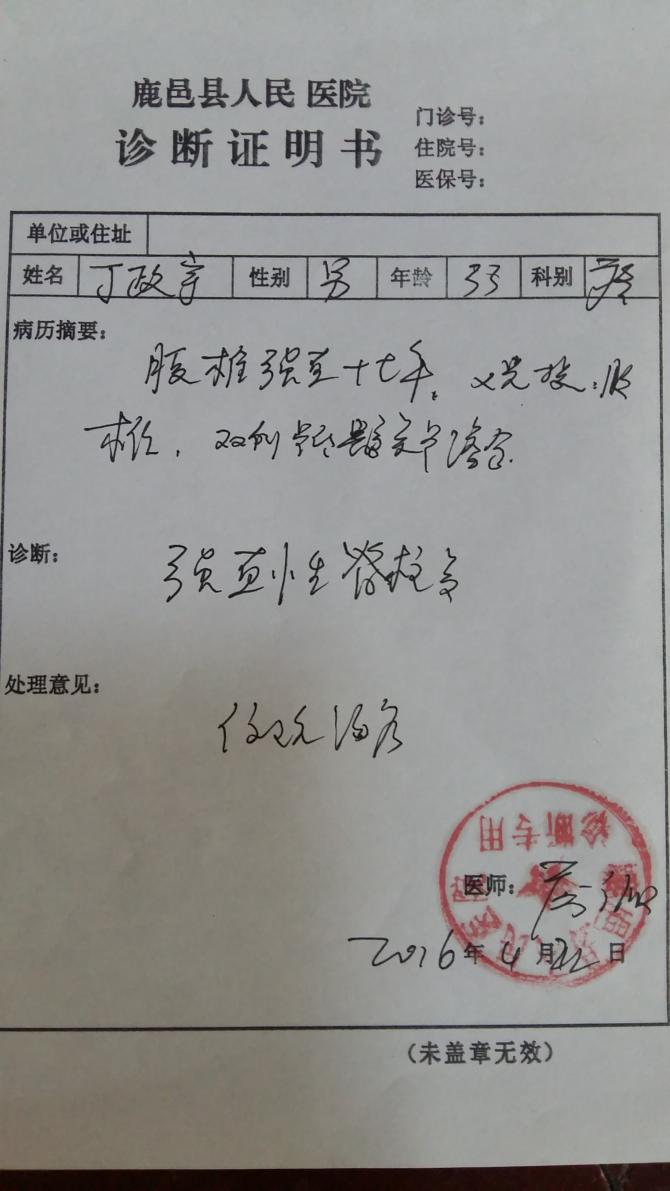 鹿邑县人民医院
诊断证明书
门诊号：
住院号：
医保号：
单位或住址
姓名 丁政宇 性别 男 年龄 33 科别
病历摘要：
腰椎强直十七年。X光披：腰
椎，双侧骶髂关节融合
诊断：
强直性脊柱炎
处理意见：
医师：
2016年4月22日
诊断专用
（未盖章无效）